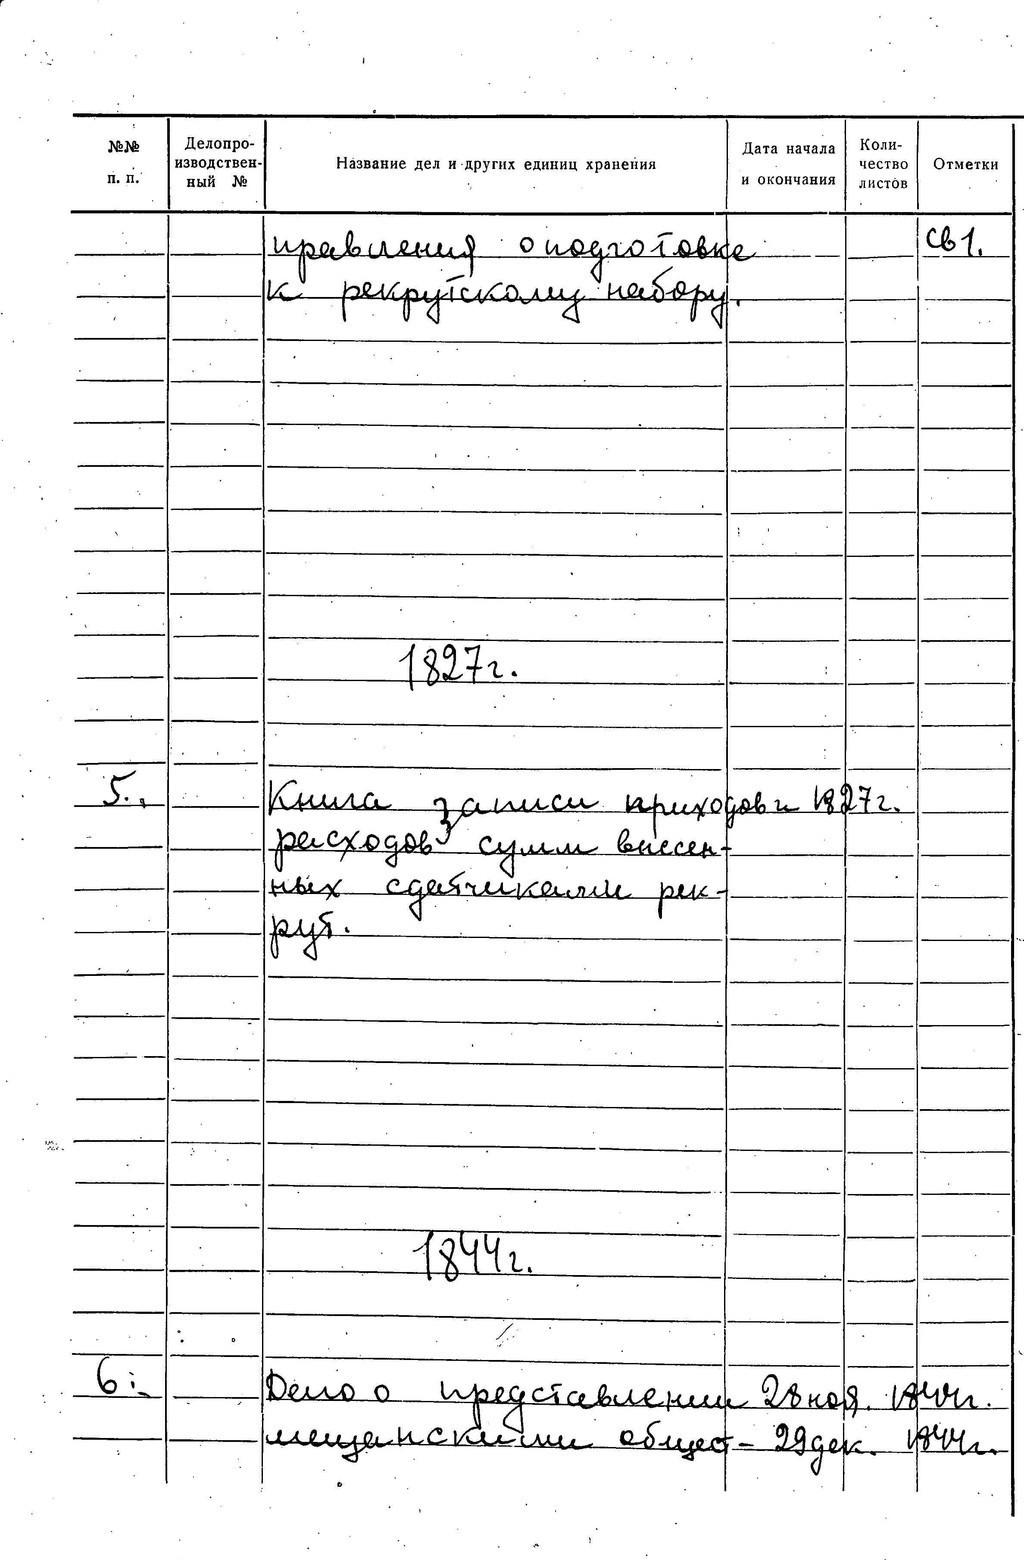 №№ п. п.
Делопро-
изводствен-
ный №
Название дел и других единиц хранения
Дата начала
и окончания
Коли-
чество
листов
Отметки
правления о подготовке св 1.
к рекрутскому набору.
1827г.
5. Книга записи приходов и 1827г.
расходов сумм внесен-
ных сдатчиками рек-
рут.
1844г.
6. Дело о представлении 28 ноя. 1844г.
мещанскими общест- 29 дек. 1844г.